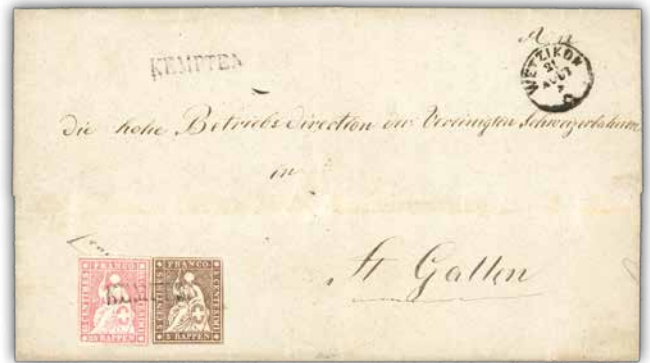 An
KEMPTEN
WETZIKON
21
AUGT
die hohe Betriebs Direction der Vereinigten Schweizerbahnen
in
St Gallen
FRANCO FRANCO
KEMPTEN
5 RAPPEN